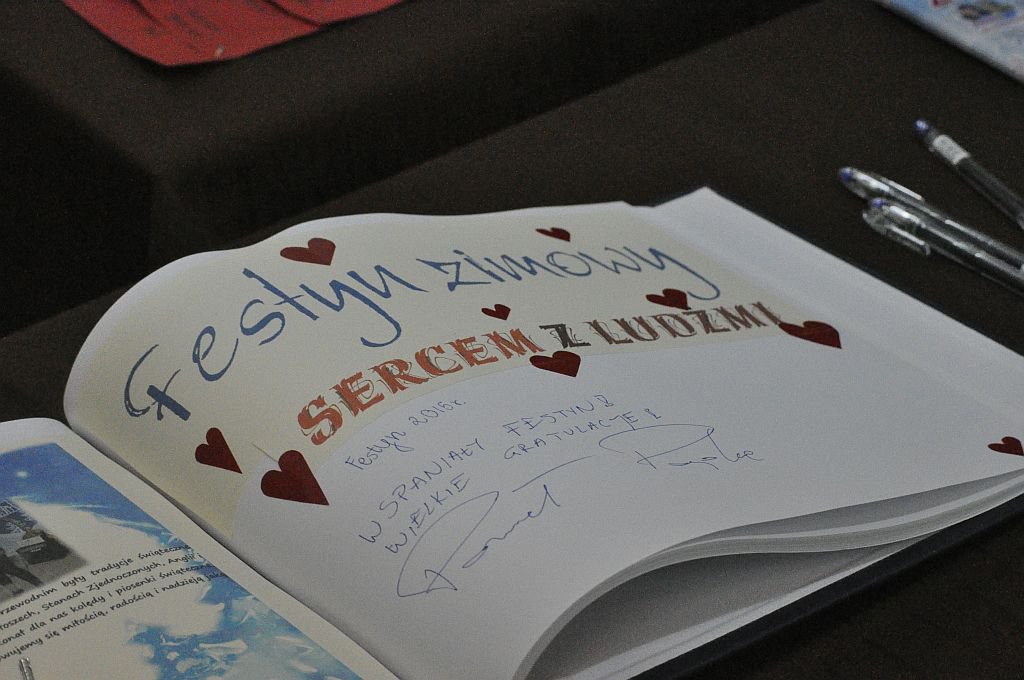 Festyn zimowy
SERCEM Z LUDŹMI
Festyn 2015r.
WSPANIAŁY FESTYN!
WIELKIE GRATULACJE!
Paweł
były tradycje świąteczne
Stanach Zjednoczonych,
dla nas kolędy i piosenki
się miłością, radością i nadzieją